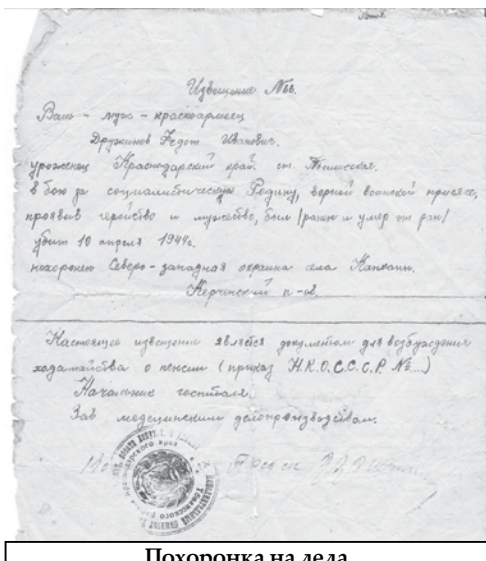 Извещение №66.
Ваш - муж - красноармеец
Дружинов Федот Иванович.
уроженец Краснодарский край. ст.
в бою за социалистическую Родину, верной воинской присяге,
проявив геройство и мужество, был /ранен и умер от ран/
убит 10 апреля 1944г.
похоронен Северо-западная окраина села Капканы.
Керченский п-ов.
Настоящее извещение является документом для возбуждения
ходатайства о пенсии (приказ Н.К.О.С.С.С.Р. №...)
Начальник госпиталя.
Зав медецинским делопроизводством.
Похоронка на деда